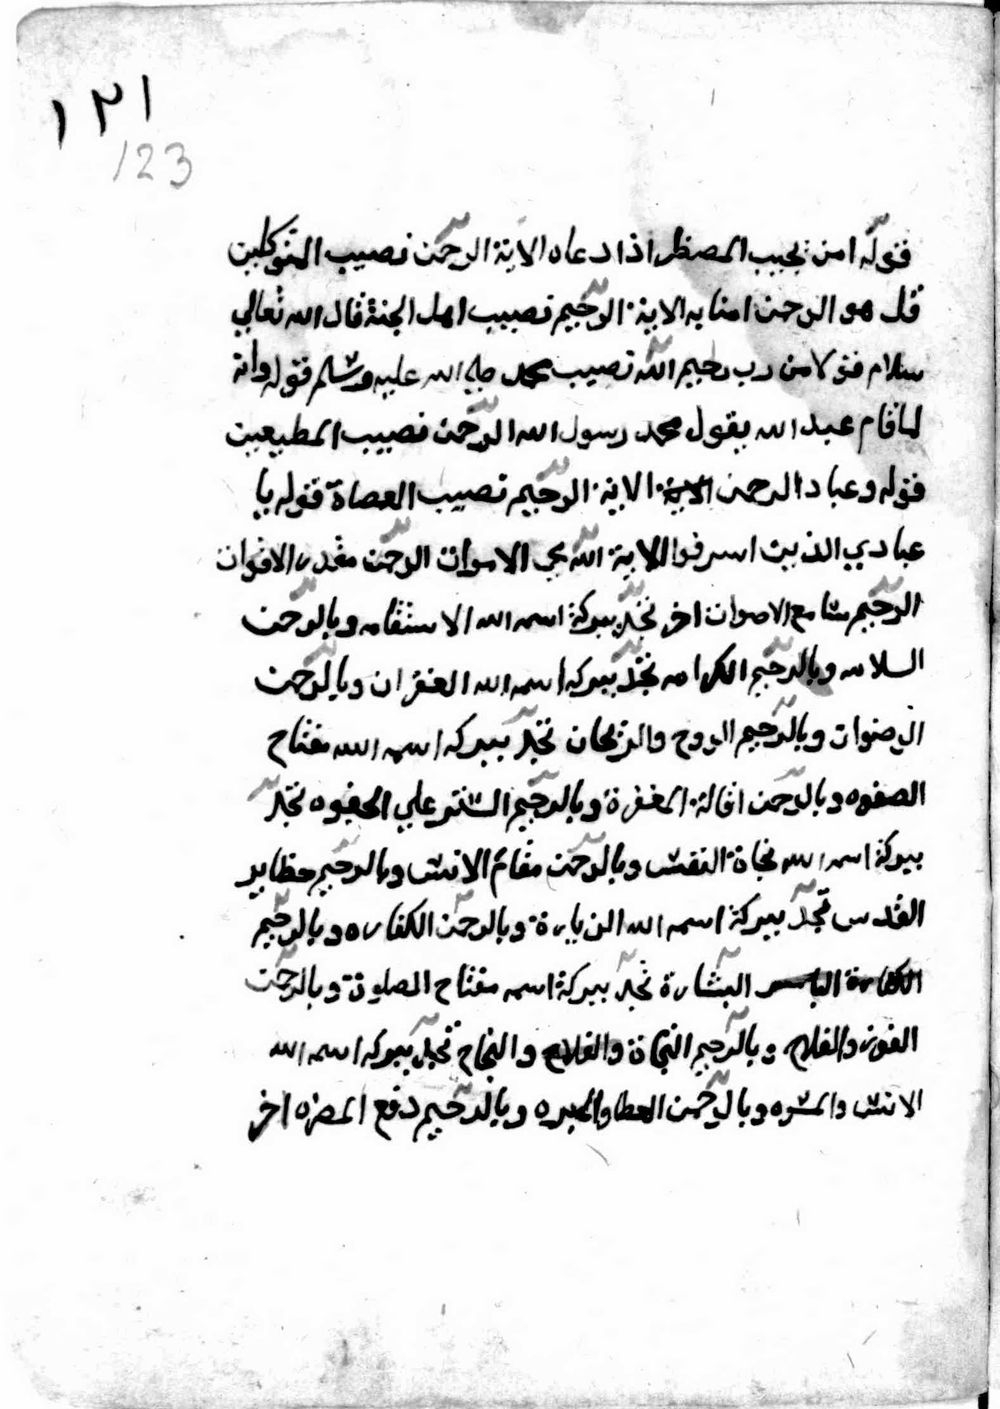 ١٢١
123
قوله امن يجيب المضطر اذا دعاه الاية الرحمن نصيب المتوكلين
قل هو الرحمن امنا به الاية الرحيم نصيب اهل الجنة قال الله تعالي
سلام قولا من رب رحيم الله نصيب محمد صلي الله عليه وسلم قوله وانه
لما قام عبد الله يقول محمد رسول الله الرحمن نصيب المطيعين
قوله وعباد الرحمن الاية الرحيم نصيب العصاة قوله يا
عبادي الذين اسرفوا الاية الله محي الاموات الرحمن مقدر الاقوات
الرحيم سامع الاصوات اخر تجد ببركة اسمه الله الاستقامه وبالرحمن
السلامه وبالرحيم الكرامه تجد ببركه اسمه الله الغفران وبالرحمن
الرضوان وبالرحيم الروح والريحان تجد ببركه اسمه الله مفتاح
الصفوه وبالرحمن اقالة المغفرة وبالرحيم الستر علي الجفوه تجد
ببركة اسمه الله نجاة النفس وبالرحمن مقام الانس وبالرحيم حظاير
القدس تجد ببركة اسمه الله الزيارة وبالرحمن الكفاره وبالرحيم
البشارة تجد ببركة اسمه مفتاح الصلوة وبالرحمن
الفوز والفلاح وبالرحيم النجاة والفلاح والنجاح تجد ببركه اسمه الله
الانس والمسره وبالرحمن العطا والمبره وبالرحيم دفع المضره اخر